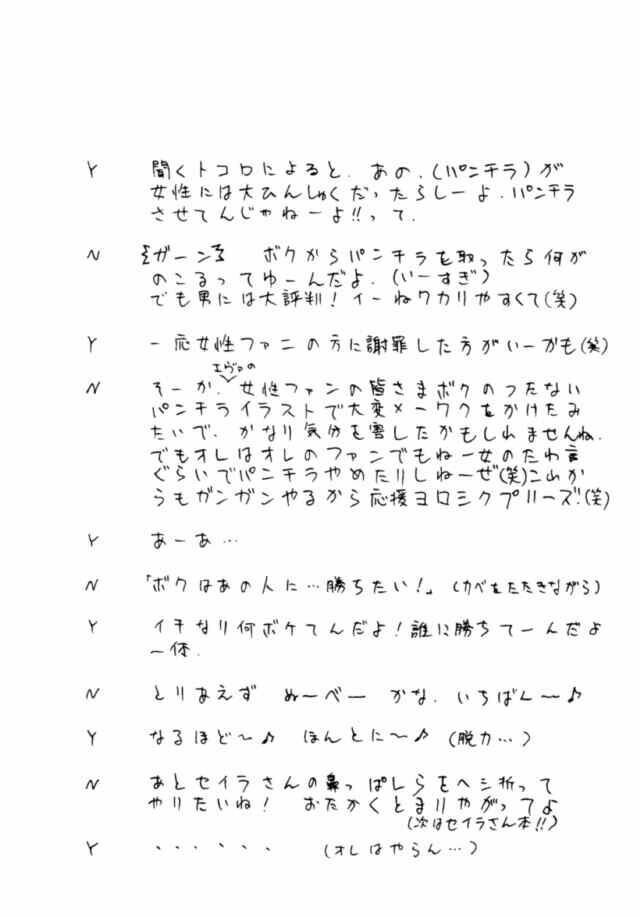 Y 聞くトコロによると、あの、(パンチラ)が
女性には大ひんしゅくだったらしーよ、パンチラ
させてんじゃねーよ!!って、
N ガーン ボクからパンチラを取ったら何が
のこるってゆーんだよ、(いーすぎ)
でも男には大評判! イーねワカリやすくて(笑)
Y 一応女性ファンの方に謝罪した方がいーかも(笑)
エヴァの
N そーか、女性ファンの皆さまボクのつたない
パンチライラストで大変メーワクをかけたみ
たいで、かなり気分を害したかもしれませんね、
でもオレはオレのファンでもねー女のたわ言
ぐらいでパンチラやめたりしねーぜ(笑)これか
らもガンガンやるから応援ヨロシクプリーズ!(笑)
Y あーあ…
N 「ボクはあの人に…勝ちたい!」(カベをたたきながら)
Y イキなり何ボケてんだよ!誰に勝ちてーんだよ
一体、
N とりあえず ぬーべー かな、いちばん〜♪
Y なるほど〜♪ ほんとに〜♪ (脱力…)
N あとセイラさんの鼻っぱしらをヘシ折って
やりたいね! おたかくとまりやがってよ
(次はセイラさん本!!)
Y ・・・・・・ (オレはやらん…)